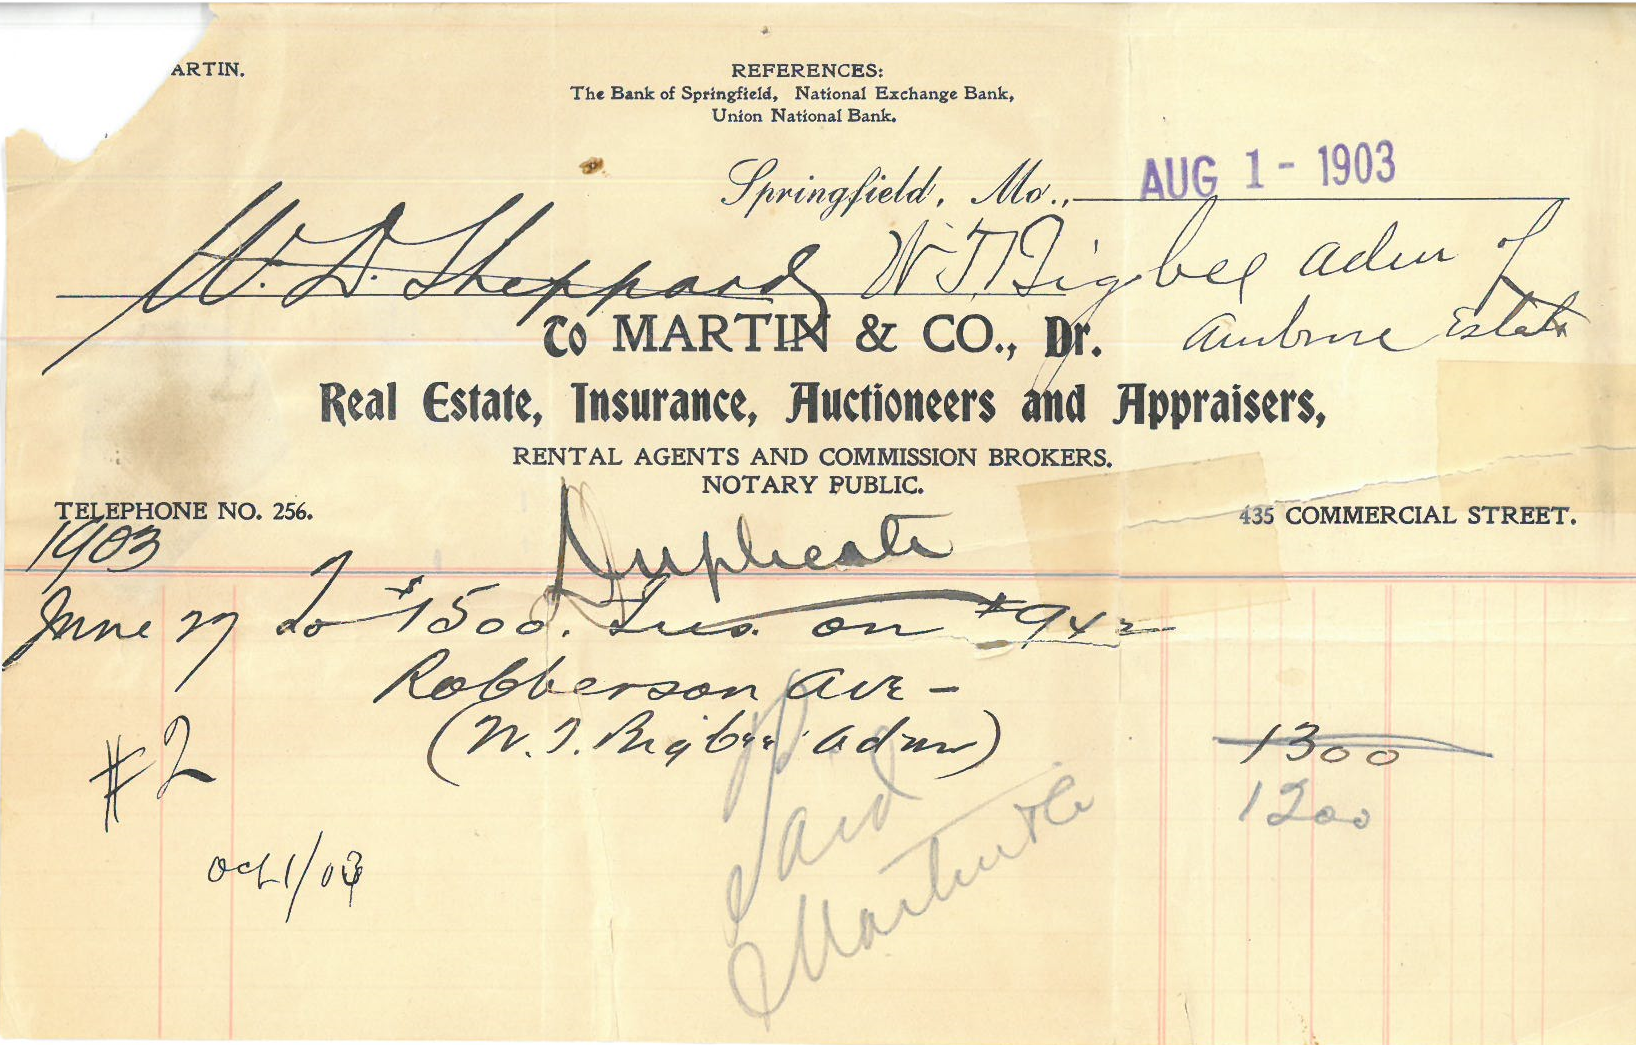 ARTIN.
REFERENCES:
The Bank of Springfield, National Exchange Bank,
Union National Bank.
Springfield, Mo., AUG 1 - 1903
W. D. Sheppard W T. Bigbee adm of
Ambrose Estate
To MARTIN & CO., Dr.
Real Estate, Insurance, Auctioneers and Appraisers,
RENTAL AGENTS AND COMMISSION BROKERS.
NOTARY PUBLIC.
TELEPHONE NO. 256. 435 COMMERCIAL STREET.
1903
Duplicate
June 27 To $1500. Ins. on #942
Robberson Ave -
(W. T. Bigbee adm) 1300
#2
1200
Oct 1/03
Paid
Martin & Co